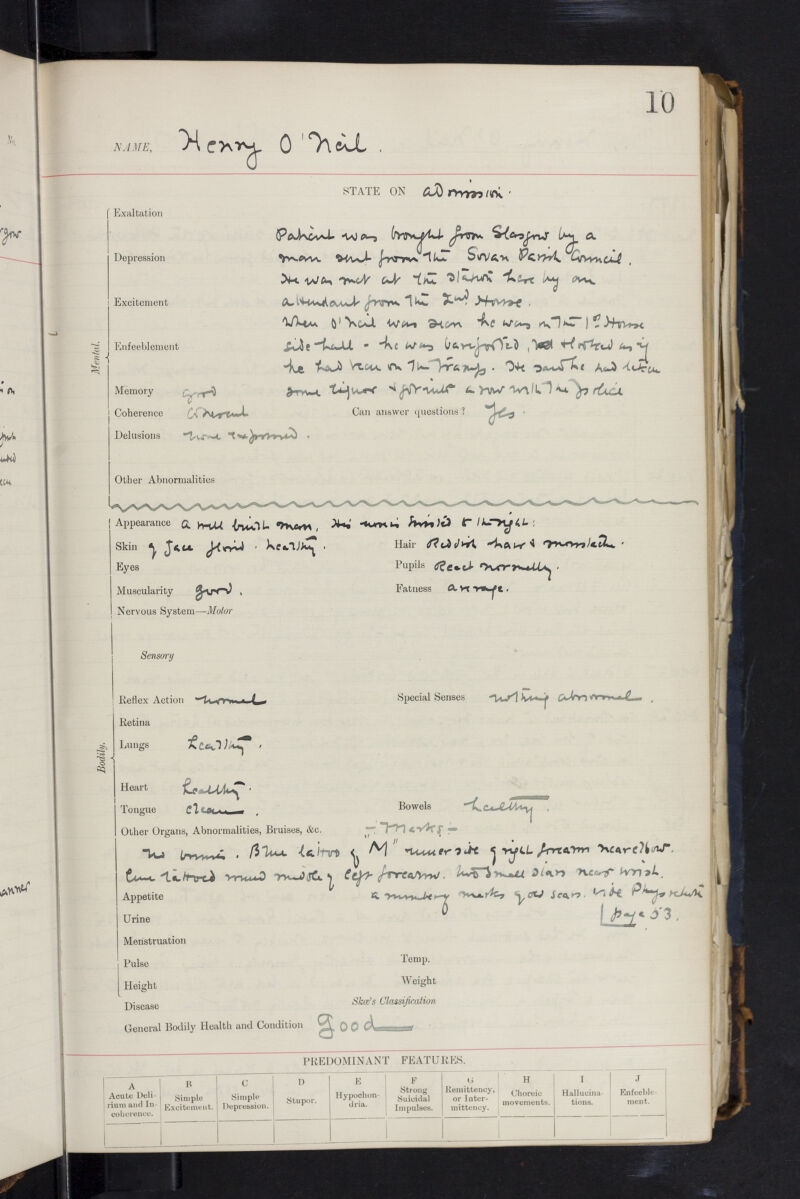 10
NAME, Henry O'Neil.
STATE ON admission.
Mental.
Exaltation
Patient was brought from Glasgow by a
Depression man sent from the Govan Parish Council.
He was met at the station here by an
Excitement attendant from the 2nd House.
When O'Neil was seen he was in the 1st House
Enfeeblement side hall - he was barefooted, & looked as if
he had been on the tramp. He said he had taken
Memory good some liquor & got into a row with the police
Coherence Coherent Can answer questions? Yes.
Delusions none expressed.
Other Abnormalities
Bodily.
Appearance a well built man. His nose is twisted to the right.
Skin of face florid. healthy. Hair Reddish hair & moustache.
Eyes Pupils React normally.
Muscularity good. Fatness average.
Nervous System—Motor
Sensory
Reflex Action normal Special Senses nothing abnormal.
Retina
Lungs healthy.
Heart healthy.
Tongue clean. Bowels healthy.
Other Organs, Abnormalities, Bruises, &c. - Marks -
No bruises. Blue tattoo of "M" inner side of right forearm near elbow.
line tattooed round middle of left forearm. two small stars near wrist.
Appetite a number of marks of old scars. vide Phys
Urine page 53.
Menstruation
Pulse Temp.
Height Weight
Disease Skæ's Classification
General Bodily Health and Condition Good
PREDOMINANT FEATURES.
A B C D E F G H I J
Acute Deli- Simple Simple Stupor. Hypochon- Strong Remittency, Choreic Hallucina- Enfeeble-
rium and In- Excitement. Depression. dria. Suicidal or Inter- movements. tions. ment.
coherence. Impulses. mittency.